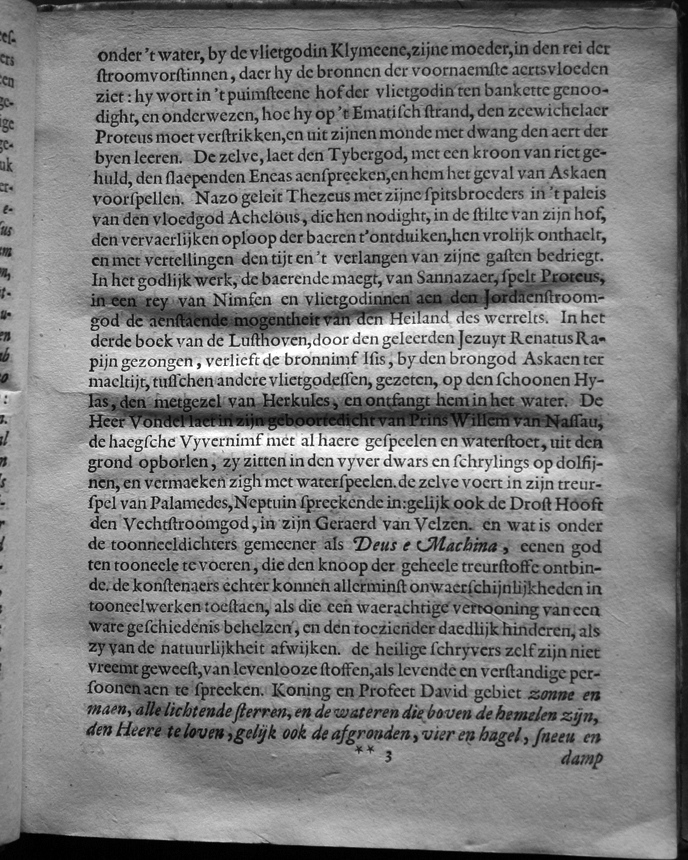 onder 't water, by de vlietgodin Klymeene, zijne moeder, in den rei der
ſtroomvorſtinnen, daer hy de bronnen der voornaemſte aertsvloeden
ziet: hy wort in 't puimſteene hof der vlietgodin ten bankette genoo-
dight, en onderwezen, hoe hy op 't Ematiſch ſtrand, den zeewichelaer
Proteus moet verſtrikken, en uit zijnen monde met dwang den aert der
byen leeren. De zelve, laet den Tybergod, met een kroon van riet ge-
huld, den ſlaependen Eneas aenſpreeken, en hem het geval van Askaen
voorſpellen. Nazo geleit Thezeus met zijne ſpitsbroeders in 't paleis
van den vloedgod Achelöus, die hen nodight, in de ſtilte van zijn hof,
den vervaerlijken oploop der baeren t'ontduiken, hen vrolijk onthaelt,
en met vertellingen den tijt en 't verlangen van zijne gaſten bedriegt.
In het godlijk werk, de baerende maegt, van Sannazaer, ſpelt Proteus,
in een rey van Nimfen en vlietgodinnen aen den Jordaenſtroom-
god de aenſtaende mogentheit van den Heiland des werrelts. In het
derde boek van de Luſthoven, door den geleerden Jezuyt Renatus Ra-
pijn gezongen, verlieft de bronnimf Iſis, by den brongod Askaen ter
maeltijt, tuſſchen andere vlietgodeſſen, gezeten, op den ſchoonen Hy-
las, den metgezel van Herkules, en ontfangt hem in het water. De
Heer Vondel laet in zijn geboortedicht van Prins Willem van Naſſau,
de haegſche Vyvernimf met al haere geſpeelen en waterſtoet, uit den
grond opborlen, zy zitten in den vyver dwars en ſchrylings op dolfij-
nen, en vermaeken zigh met waterſpeelen. de zelve voert in zijn treur-
ſpel van Palamedes, Neptuin ſpreekende in: gelijk ook de Droſt Hooft
den Vechtſtroomgod, in zijn Geraerd van Velzen. en wat is onder
de toonneeldichters gemeener als Deus e Machina, eenen god
ten tooneele te voeren, die den knoop der geheele treurſtoffe ontbin-
de. de konſtenaers echter konnen allerminſt onwaerſchijnlijkheden in
tooneelwerken toeſtaen, als die een waerachtige vertooning van een
ware geſchiedenis behelzen, en den toeziender daedlijk hinderen, als
zy van de natuurlijkheit afwijken. de heilige ſchryvers zelf zijn niet
vreemt geweeſt, van levenlooze ſtoffen, als levende en verſtandige per-
ſoonen aen te ſpreeken. Koning en Profeet David gebiet zonne en
maen, alle lichtende ſterren, en de wateren die boven de hemelen zijn,
den Heere te loven, gelijk ook de afgronden, vier en hagel, ſneeu en
** 3 damp